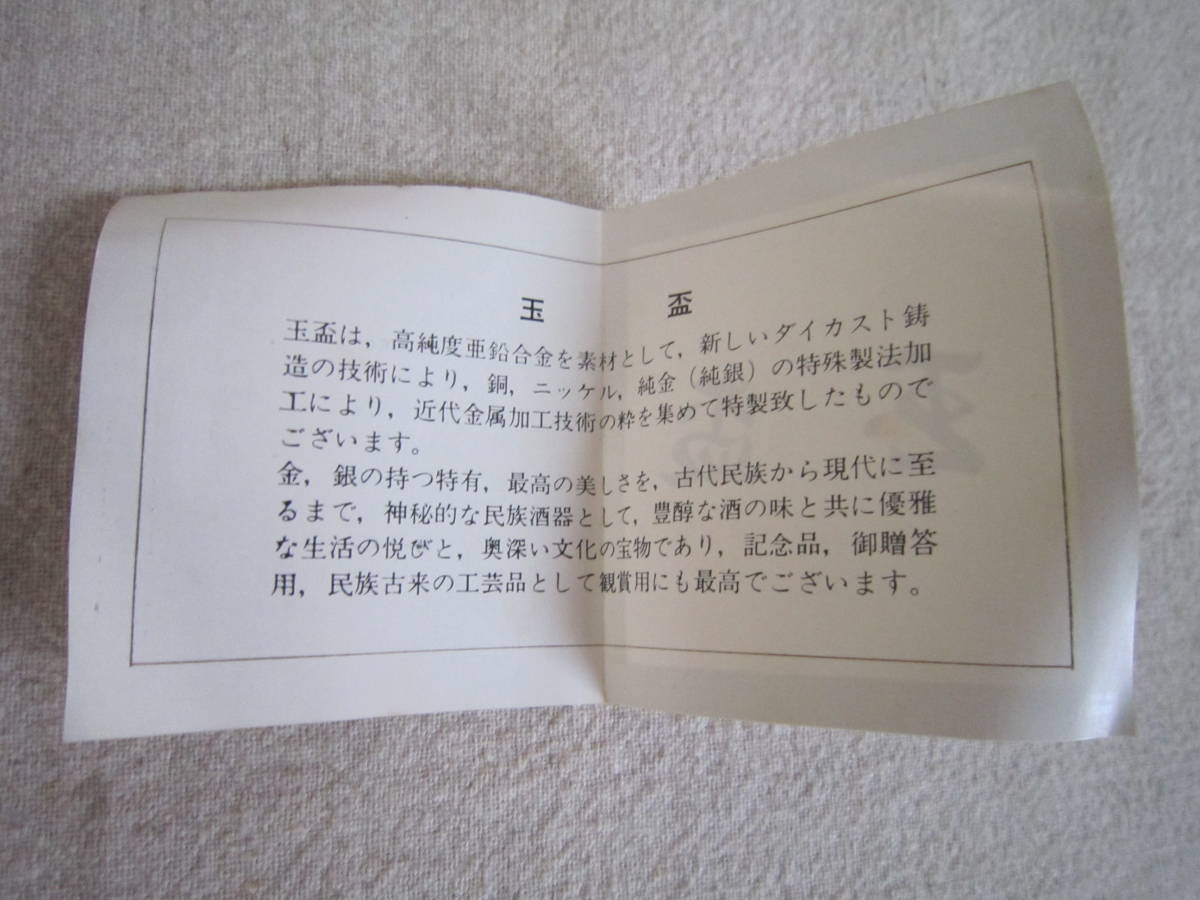 玉盃
玉盃は，高純度亜鉛合金を素材として，新しいダイカスト鋳
造の技術により，銅，ニッケル，純金（純銀）の特殊製法加
工により，近代金属加工技術の粋を集めて特製致したもので
ございます。
金，銀の持つ特有，最高の美しさを，古代民族から現代に至
るまで，神秘的な民族酒器として，豊醇な酒の味と共に優雅
な生活の悦びと，奥深い文化の宝物であり，記念品，御贈答
用，民族古来の工芸品として観賞用にも最高でございます。